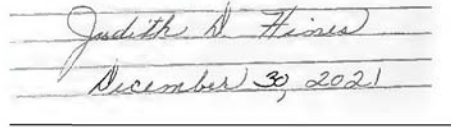 Judith D. Hines
December 30, 2021